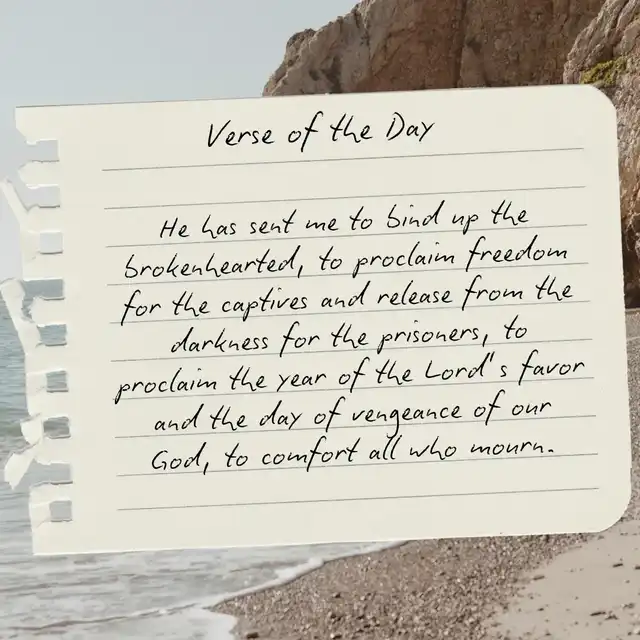 Verse of the Day
He has sent me to bind up the
brokenhearted, to proclaim freedom
for the captives and release from the
darkness for the prisoners, to
proclaim the year of the Lord's favor
and the day of vengeance of our
God, to comfort all who mourn.